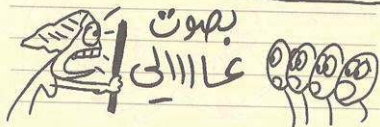 بصوت
عااااالي